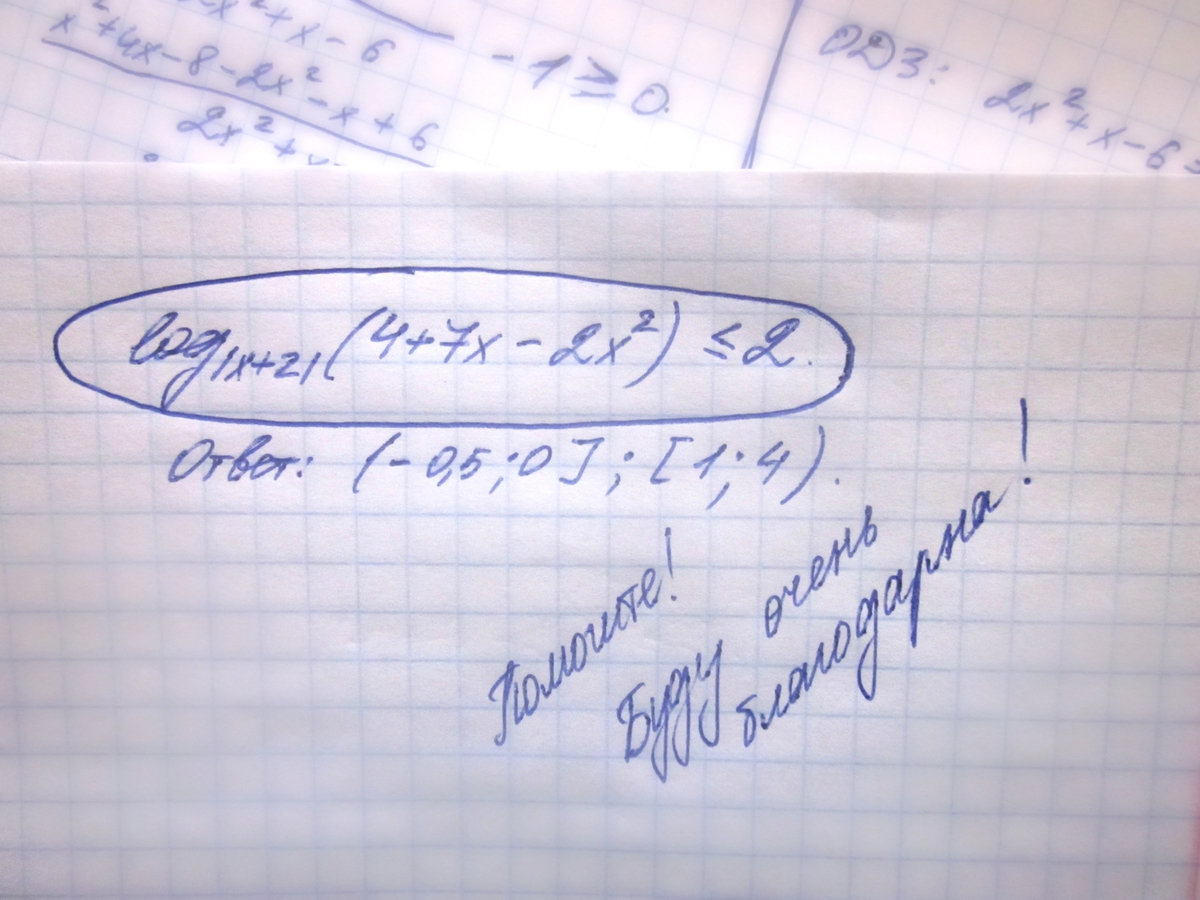 x²+x-6
x²+4x-8-2x²-x+6
2x²+
-1≥0.
ОДЗ: 2x²+x-6
log|x+2|(4+7x-2x²)≤2.
Ответ: (-0,5;0];[1;4).
Помогите!
Буду очень
благодарна!